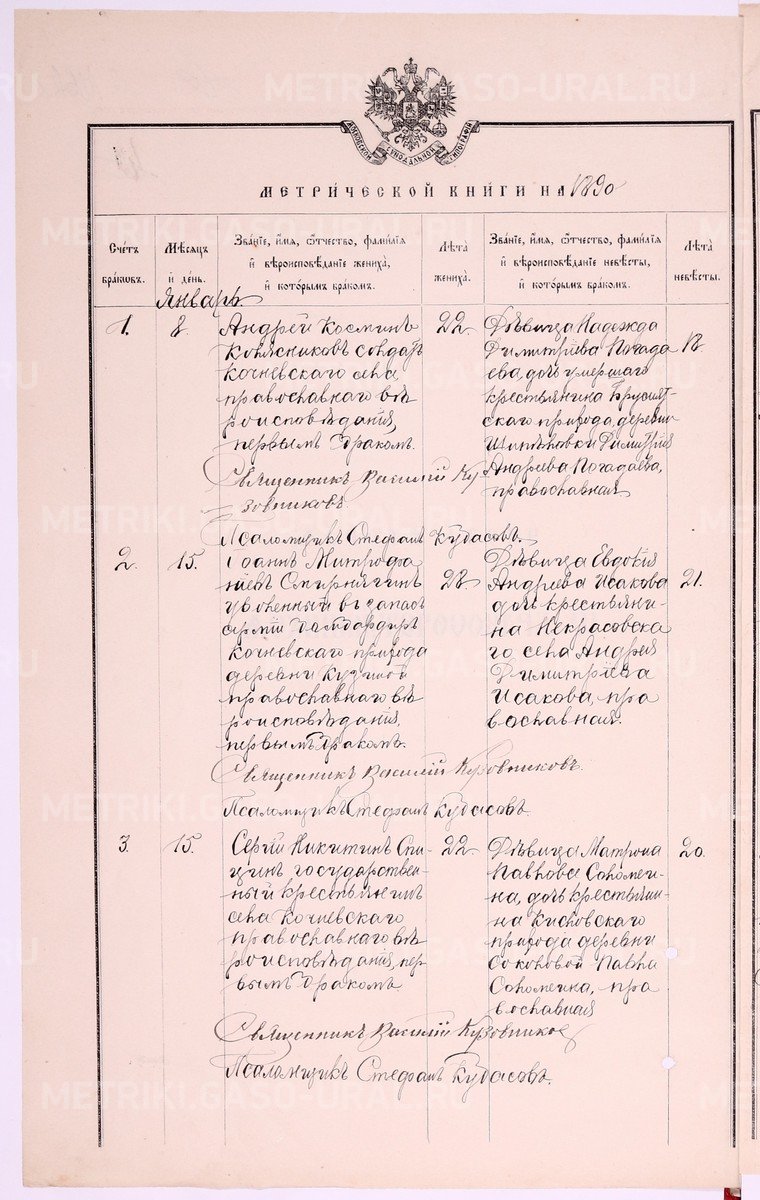 METRIKI.GASO-URAL.RU
МОСКОВСКОЙ СѴНОДАЛЬНОЙ ТИПОГРАФІИ
МЕТРИ́ЧЕСКОЙ КНИ́ГИ НА 1890
Сче́тъ бра́ковъ.
Мѣ́сяцъ и҆ де́нь.
Зва́нїе, и҆́мя, ѻ҆́тчество, фамилїѧ и҆ вѣроисповѣ́данїе жениха̀, и҆ кото́рымъ бра́комъ.
Лѣ́та жениха̀.
Зва́нїе, и҆́мя, ѻ҆́тчество, фамилїѧ и҆ вѣроисповѣ́данїе невѣ́сты, и҆ кото́рымъ бра́комъ.
Лѣ́та невѣ́сты.
Январь
1.
8.
Андрей Косминъ
солдатъ
Кочневскаго села
православнаго вѣ
роисповѣданія,
первымъ бракомъ.
22.
Дѣвица Надежда
Димитріева Погада
ева, дочь умершаго
крестьянина Брусят
скаго прихода, деревни
Димитрія
Андреева Погадаева,
православная
Священникъ Василій Ку
зовниковъ
Псаломщикъ Стефанъ Кудасовъ.
2.
15.
Іоаннъ Митрофа
ніевъ
уволенный въ запасъ
арміи бомбардиръ
Кочневскаго прихода
деревни
православнаго вѣ
роисповѣданія,
первымъ бракомъ.
Дѣвица Евдокія
Андреева Исакова
дочь крестьяни-
на Некрасовска
го села Андрея
Димитріева
Исакова, пра
вославная.
21.
Священникъ Василій Кузовниковъ.
Псаломщикъ Стефанъ Кудасовъ
3.
15.
Сергій Никитинъ Спи-
цинъ государствен-
ный крестьянинъ
села Кочневскаго
православнаго вѣ
роисповѣданія, пер
вымъ бракомъ
22
Дѣвица Матрона
Павлова Соломеи-
на, дочь крестьяни-
на Кисловскаго
прихода деревни
Соколовой Павла
Соломеина, пра
вославная
20.
Священникъ Василій Кузовников
Псаломщикъ Стефанъ Кудасовъ.